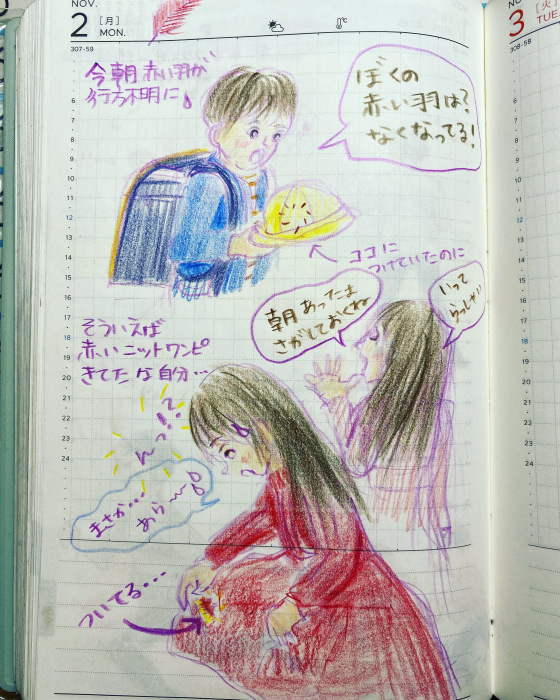 NOV.
2 [月] MON.
307-59
NO
3 [火] TUE.
308-58
今朝 赤い羽が
行方不明に
ぼくの
赤い羽は?
なくなってる!
ココに
つけていたのに
朝あったよ
さがしておくね
いって
らっしゃい
そういえば
赤いニットワンピ
きてたな自分…
んっ!?
まさか…
あら〜
ついてる…
6
7
8
9
10
11
12
13
14
15
16
17
18
19
20
21
22
23
24